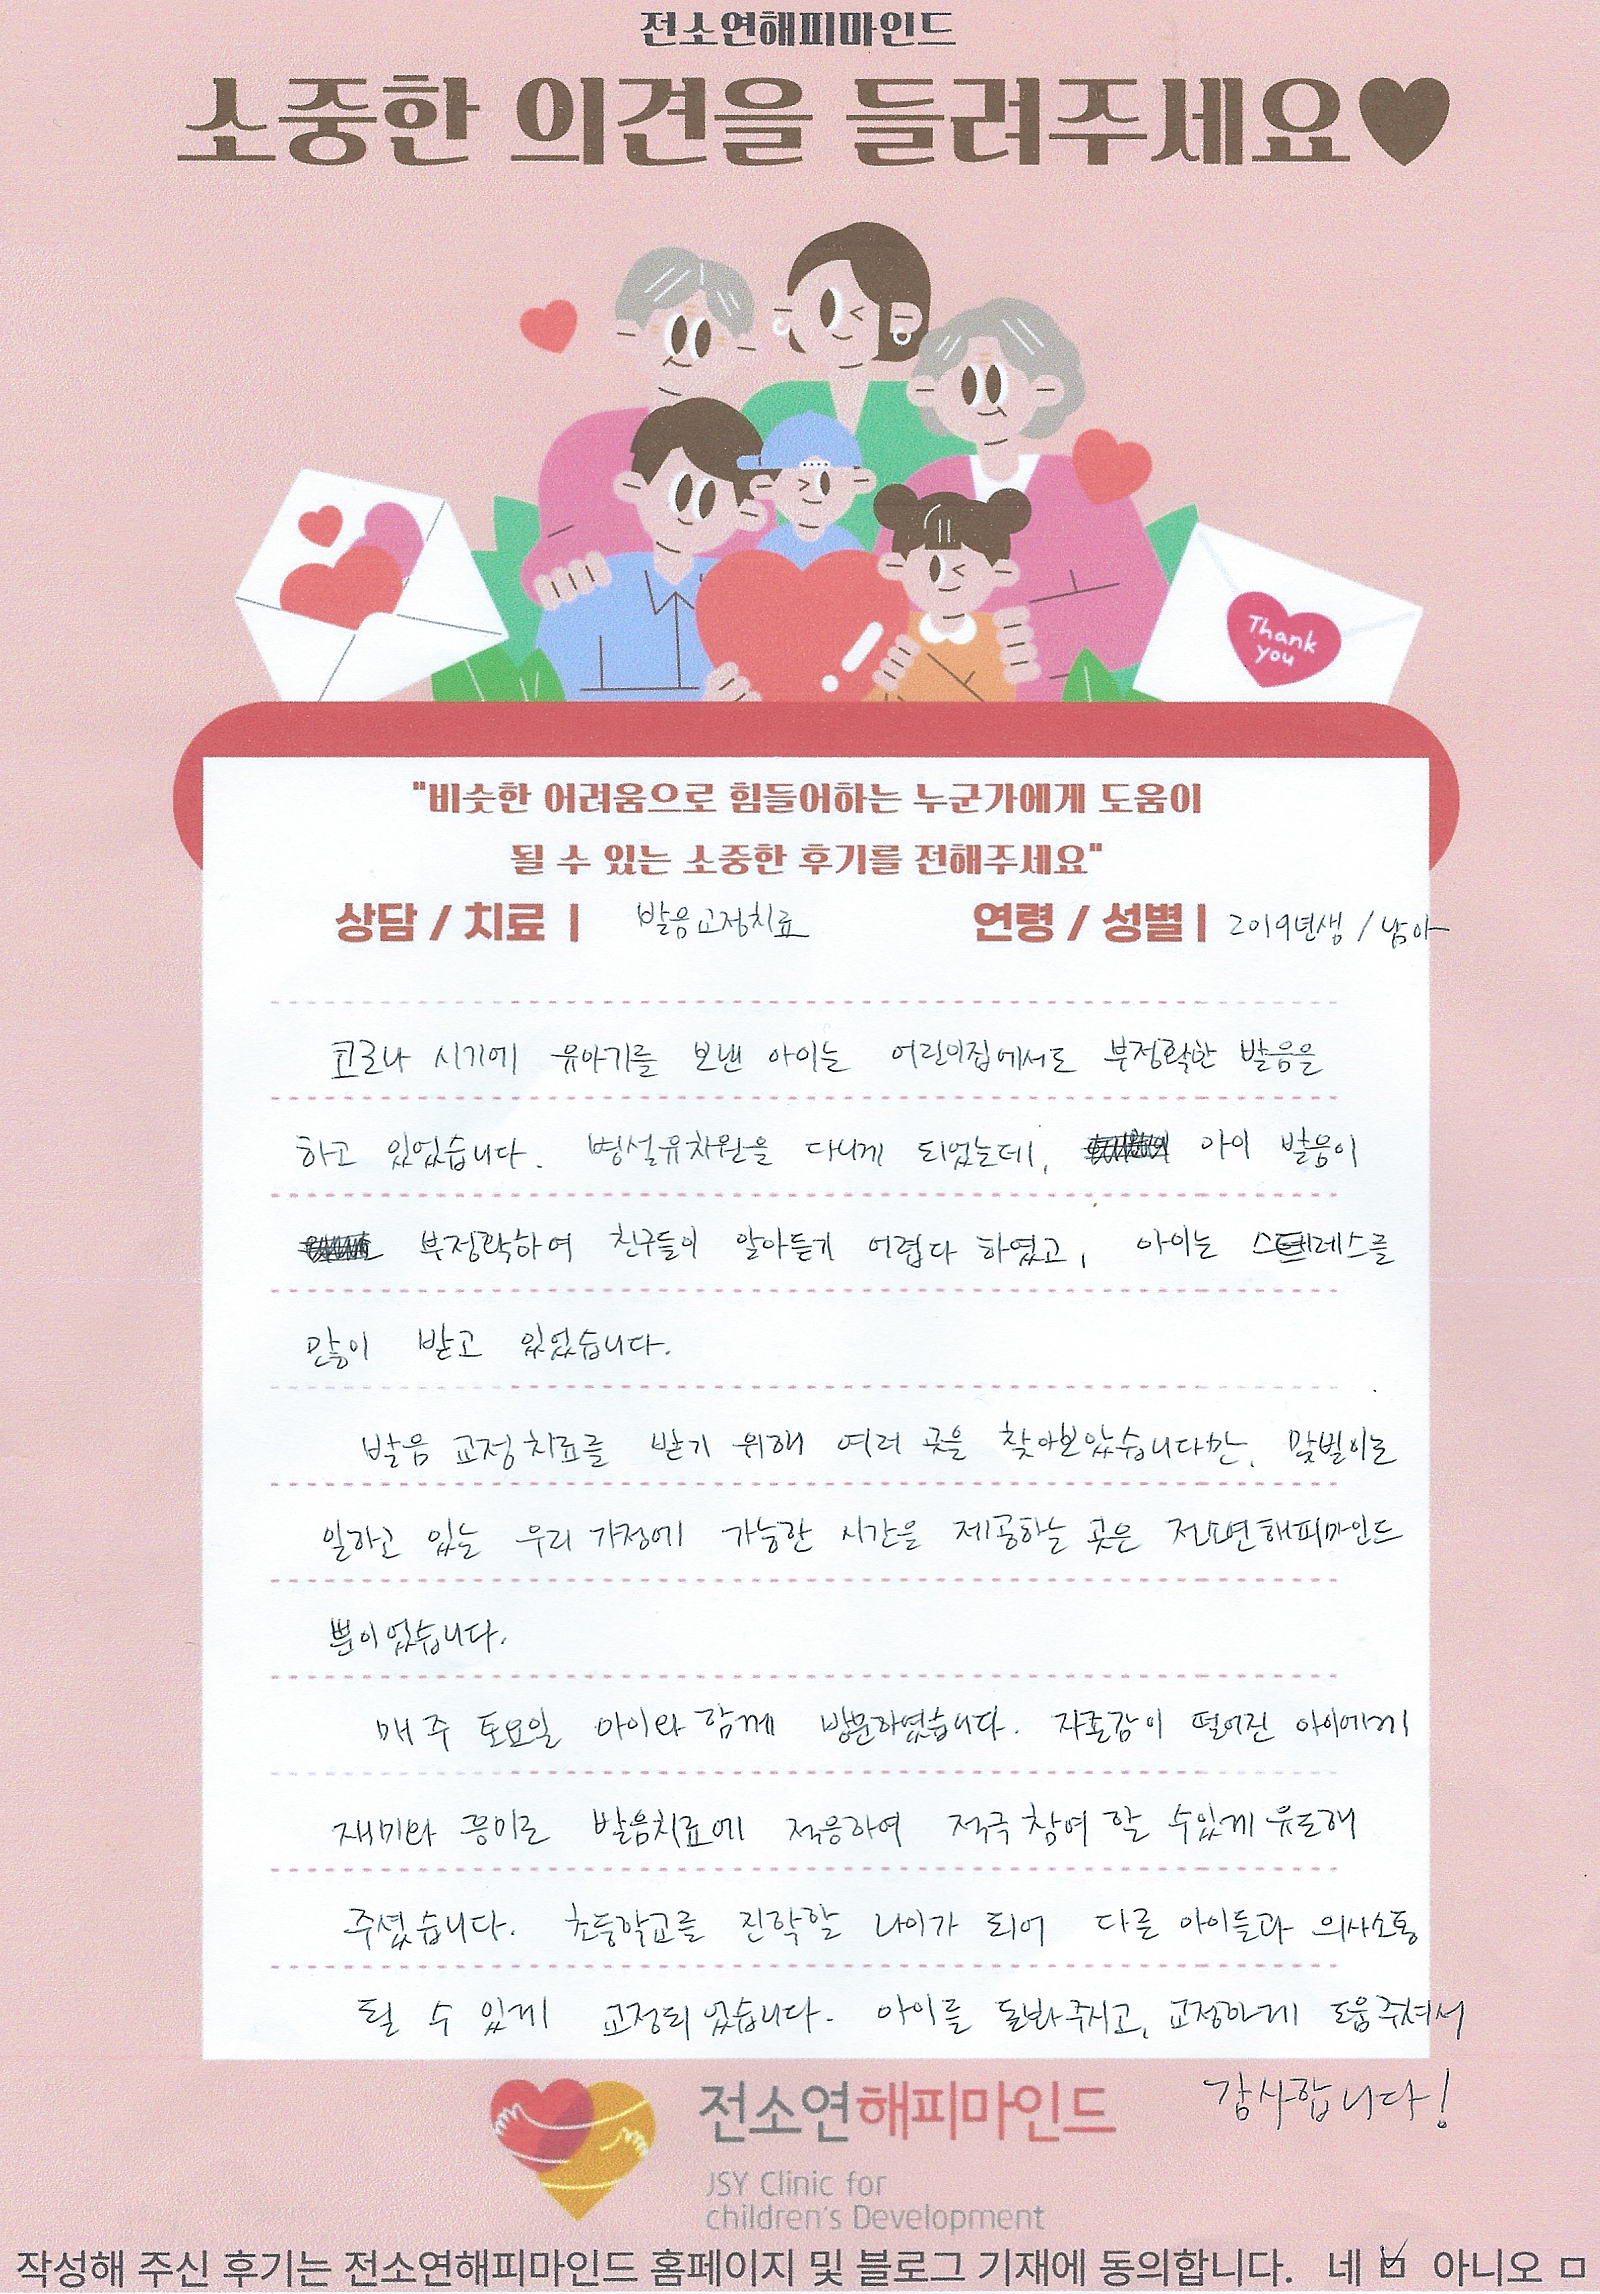 전소연해피마인드
소중한 의견을 들려주세요♥
Thank
you
"비슷한 어려움으로 힘들어하는 누군가에게 도움이
될 수 있는 소중한 후기를 전해주세요"
상담 / 치료 | 발음교정치료 연령 / 성별 | 2019년생 / 남아
코로나 시기에 유아기를 보낸 아이는 어린이집에서도 부정확한 발음을
하고 있었습니다. 병설유치원을 다니게 되었는데, 아이 발음이
부정확하여 친구들이 알아듣기 어렵다 하였고, 아이는 스트레스를
많이 받고 있었습니다.
발음 교정치료를 받기 위해 여러 곳을 찾아보았습니다만, 맞벌이로
일하고 있는 우리 가정에 가능한 시간을 제공하는 곳은 전소연해피마인드
뿐이었습니다.
매주 토요일 아이와 함께 방문하였습니다. 자존감이 떨어진 아이에게
재미와 흥미로 발음치료에 적응하여 적극 참여 할 수있게 유도해
주셨습니다. 초등학교를 진학할 나이가 되어 다른 아이들과 의사소통
될 수 있게 교정되었습니다. 아이를 돌봐주시고, 교정하게 도움주셔서
감사합니다!
전소연해피마인드
JSY Clinic for
children's Development
작성해 주신 후기는 전소연해피마인드 홈페이지 및 블로그 기재에 동의합니다. 네 ☑ 아니오 □